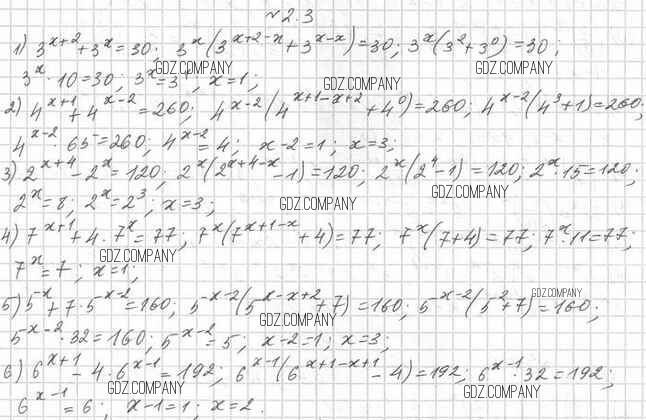 №2.3
1) 3^{x+2}+3^x=30; 3^x(3^{x+2-x}+3^{x-x})=30; 3^x(3^2+3^0)=30;
GDZ.COMPANY GDZ.COMPANY
3^x·10=30; 3^x=3^1; x=1;
GDZ.COMPANY
2) 4^{x+1}+4^{x-2}=260; 4^{x-2}(4^{x+1-x+2}+4^0)=260; 4^{x-2}(4^3+1)=260;
4^{x-2}·65=260; 4^{x-2}=4; x-2=1; x=3;
GDZ.COMPANY
3) 2^{x+4}-2^x=120; 2^x(2^{x+4-x}-1)=120; 2^x(2^4-1)=120; 2^x·15=120;
GDZ.COMPANY
2^x=8; 2^x=2^3; x=3;
GDZ.COMPANY
4) 7^{x+1}+4·7^x=77; 7^x(7^{x+1-x}+4)=77; 7^x(7+4)=77; 7^x·11=77;
GDZ.COMPANY
7^x=7; x=1;
GDZ.COMPANY
5) 5^{-x}+7·5^{-x-2}=160; 5^{-x-2}(5^{-x-x+2}+7)=160; 5^{-x-2}(5^2+7)=160;
GDZ.COMPANY
5^{-x-2}·32=160; 5^{-x-2}=5; x-2=1; x=3;
6) 6^{x+1}-4·6^{x-1}=192; 6^{x-1}(6^{x+1-x+1}-4)=192; 6^{x-1}·32=192;
GDZ.COMPANY GDZ.COMPANY
6^{x-1}=6; x-1=1; x=2.